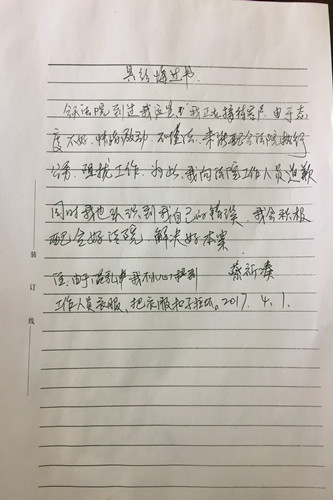 具结悔过书
法院到过我家里时我正在接待客户,由于态
度不好,情绪激动,不懂法,来谅配合法院执行
公务,阻扰工作,为此,我向法院工作人员道歉
同时我也认识到我自己的错误,我会积极
配合好法院,解决好本案
注:由于混乱中我不小心 到
工作人员衣服,把衣服扣子拉坏。2017.4.1.
装
订
线